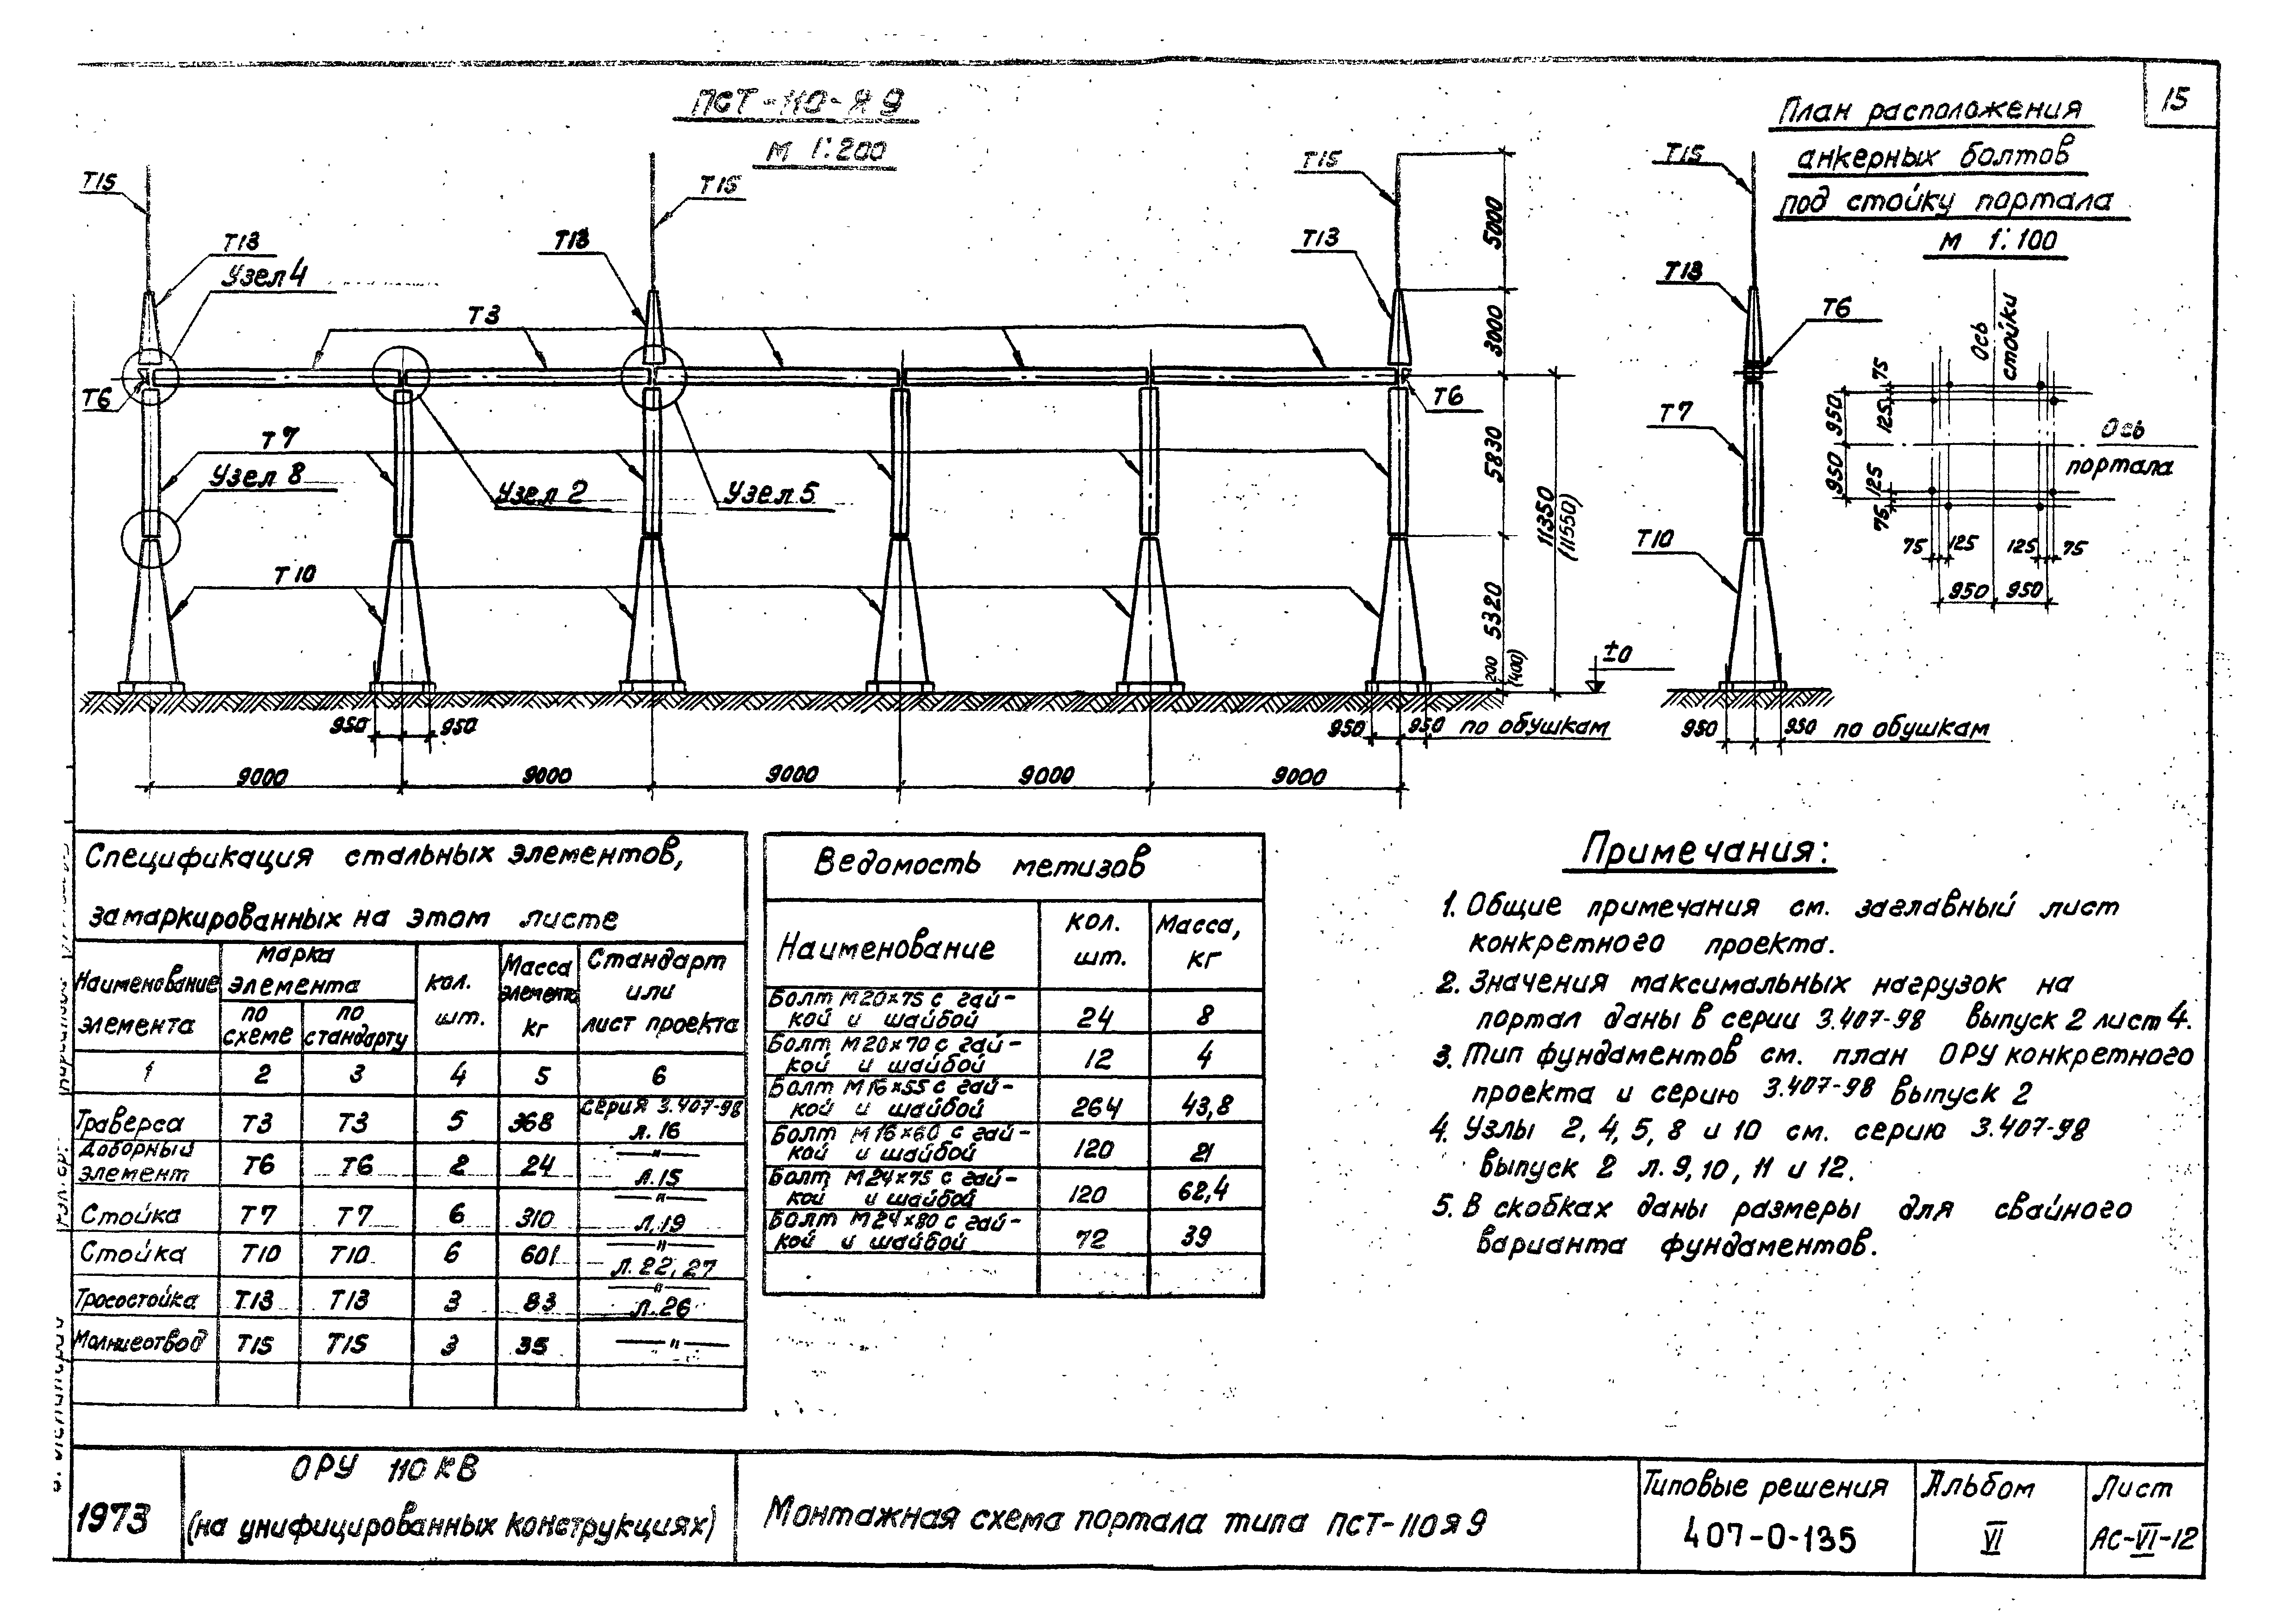 15
ПСТ-110-Я9
М 1:200
Т15
Т15
Т15
Т15
Т13
Т13
Т13
Т13
Узел 4
Т3
Т6
Т6
Т6
Т7
Т7
Узел 8
Узел 2
Узел 5
Т10
Т10
5000
3000
5830
5320
200
(400)
11350
(11550)
±0
950
950
950
950 по обушкам
950
950 по обушкам
9000
9000
9000
9000
9000
План расположения
анкерных болтов
под стойку портала
М 1:100
Ось
стойки
Ось
портала
75
125
950
950
125
75
75
125
125
75
950
950
Спецификация стальных элементов,
замаркированных на этом листе
Наименование элемента
Марка элемента
по схеме
по стандарту
кол. шт.
Масса элемента кг
Стандарт или лист проекта
1 2 3 4 5 6
Траверса Т3 Т3 5 368 серия 3.407-98 л.16
Доборный элемент Т6 Т6 2 24 —"— л.15
Стойка Т7 Т7 6 310 —"— л.19
Стойка Т10 Т10 6 601 —"— л.22,27
Тросостойка Т13 Т13 3 83 —"— л.26
Молниеотвод Т15 Т15 3 35 —"—
Ведомость метизов
Наименование
кол. шт.
Масса, кг
Болт М20×75 с гай-
кой и шайбой 24 8
Болт М20×70 с гай-
кой и шайбой 12 4
Болт М16×55 с гай-
кой и шайбой 264 43,8
Болт М16×60 с гай-
кой и шайбой 120 21
Болт М24×75 с гай-
кой и шайбой 120 62,4
Болт М24×80 с гай-
кой и шайбой 72 39
Примечания:
1. Общие примечания см. заглавный лист
конкретного проекта.
2. Значения максимальных нагрузок на
портал даны в серии 3.407-98 выпуск 2 лист 4.
3. Тип фундаментов см. план ОРУ конкретного
проекта и серию 3.407-98 выпуск 2
4. Узлы 2, 4, 5, 8 и 10 см. серию 3.407-98
выпуск 2 л. 9, 10, 11 и 12.
5. В скобках даны размеры для свайного
варианта фундаментов.
1973
ОРУ 110 кВ
(на унифицированных конструкциях)
Монтажная схема портала типа ПСТ-110Я9
Типовые решения
407-0-135
Альбом
VI
Лист
АС-VI-12